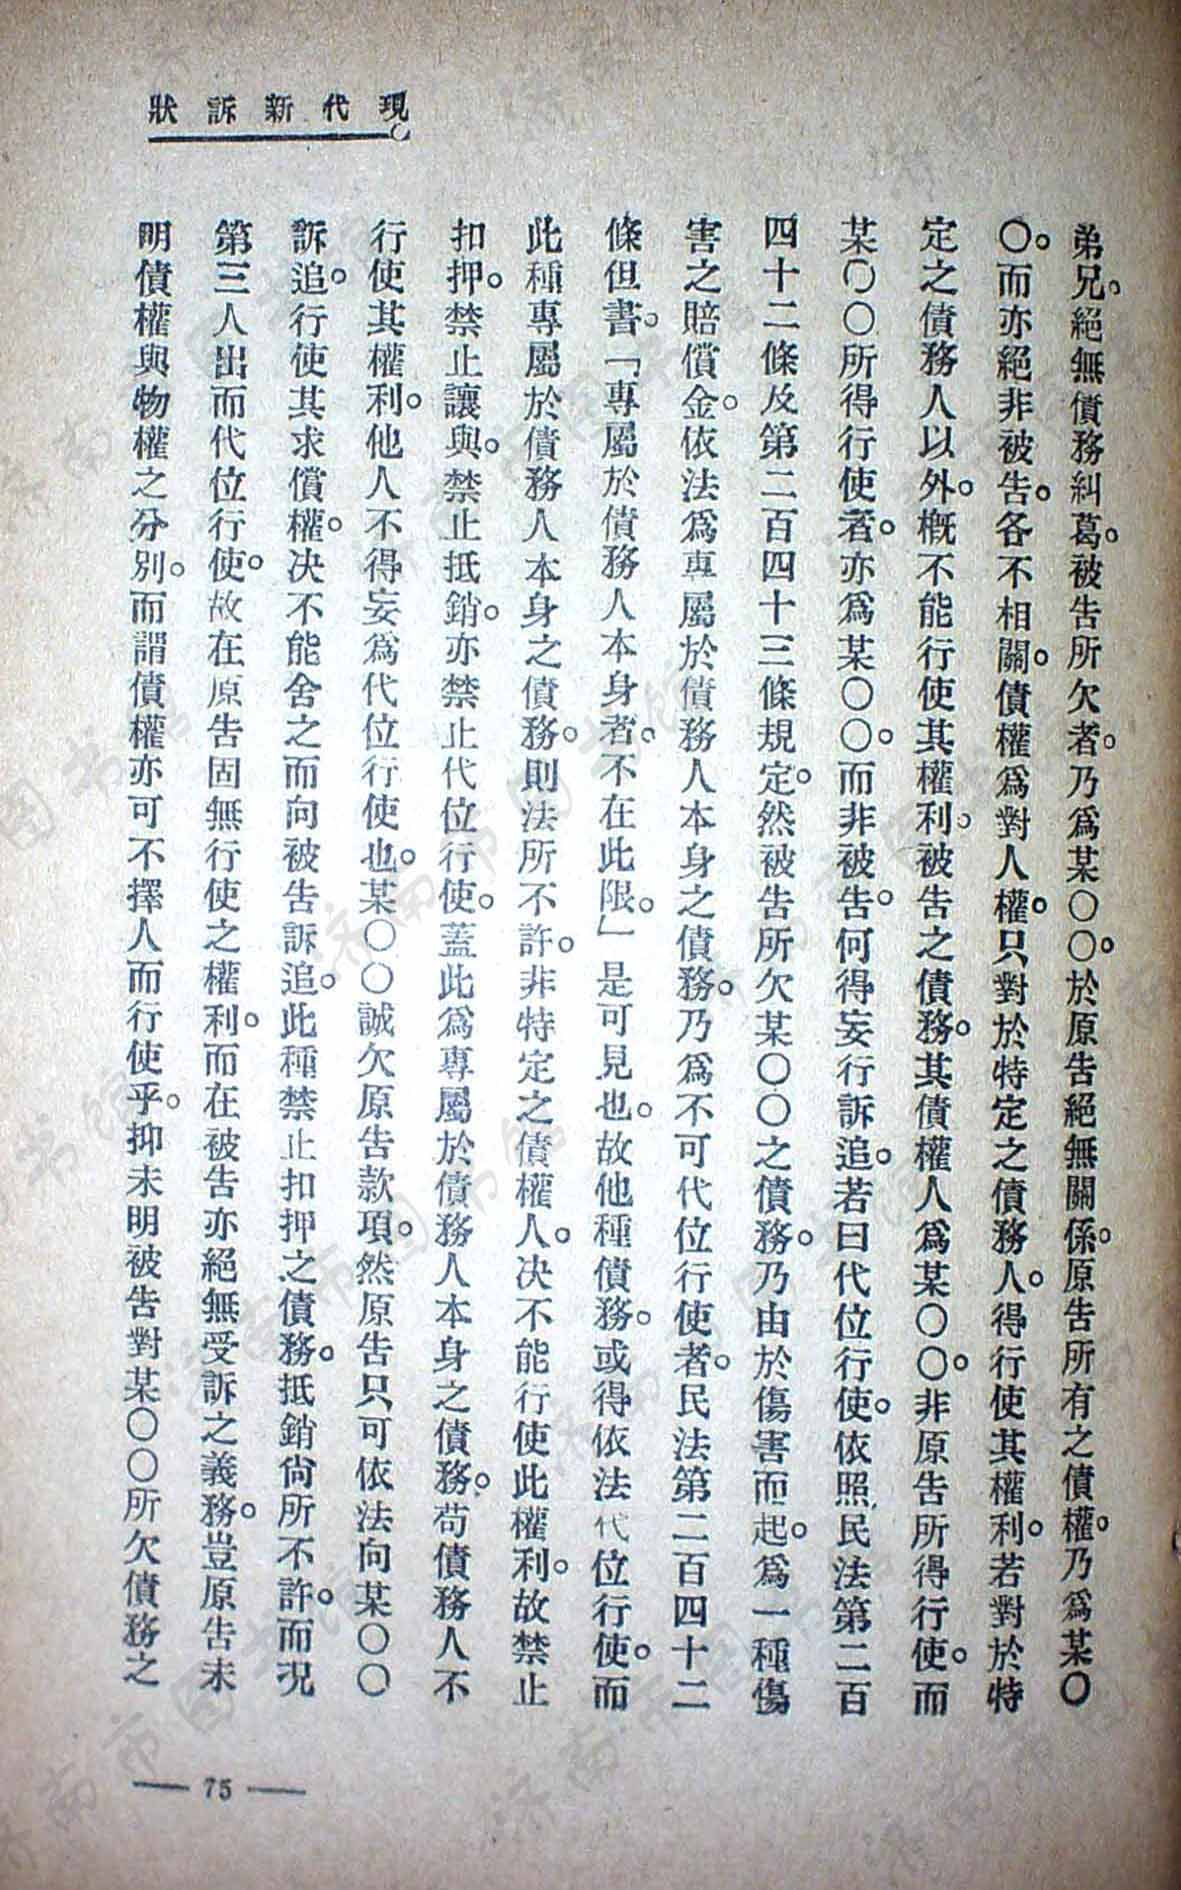 現代新訴狀
弟兄。絕無債務糾葛。被告所欠者。乃爲某〇〇。於原告絕無關係。原告所有之債權。乃爲某〇
〇。而亦絕非被告。各不相關。債權爲對人權。只對於特定之債務人。得行使其權利。若對於特
定之債務人以外。槪不能行使其權利。被告之債務。其債權人爲某〇〇。非原告所得行使。而
某〇〇所得行使者。亦爲某〇〇。而非被告。何得妄行訴追。若曰代位行使。依照民法第二百
四十二條及第二百四十三條規定。然被告所欠某〇〇之債務。乃由於傷害而起。爲一種傷
害之賠償金。依法爲專屬於債務人本身之債務。乃爲不可代位行使者。民法第二百四十二
條但書。「專屬於債務人本身者。不在此限。」是可見也。故他種債務。或得依法代位行使。而
此種專屬於債務人本身之債務。則法所不許。非特定之債權人。决不能行使此權利。故禁止
扣押。禁止讓與。禁止抵銷。亦禁止代位行使。蓋此爲專屬於債務人本身之債務。苟債務人不
行使其權利。他人不得妄爲代位行使也。某〇〇誠欠原告款項。然原告只可依法向某〇〇
訴追。行使其求償權。决不能舍之而向被告訴追。此種禁止扣押之債務。抵銷尙所不許。而况
第三人出而代位行使。故在原告固無行使之權利。而在被告亦絕無受訴之義務。豈原告未
明債權與物權之分別。而謂債權亦可不擇人而行使乎。抑未明被告對某〇〇所欠債務之
— 75 —
济南市图书馆